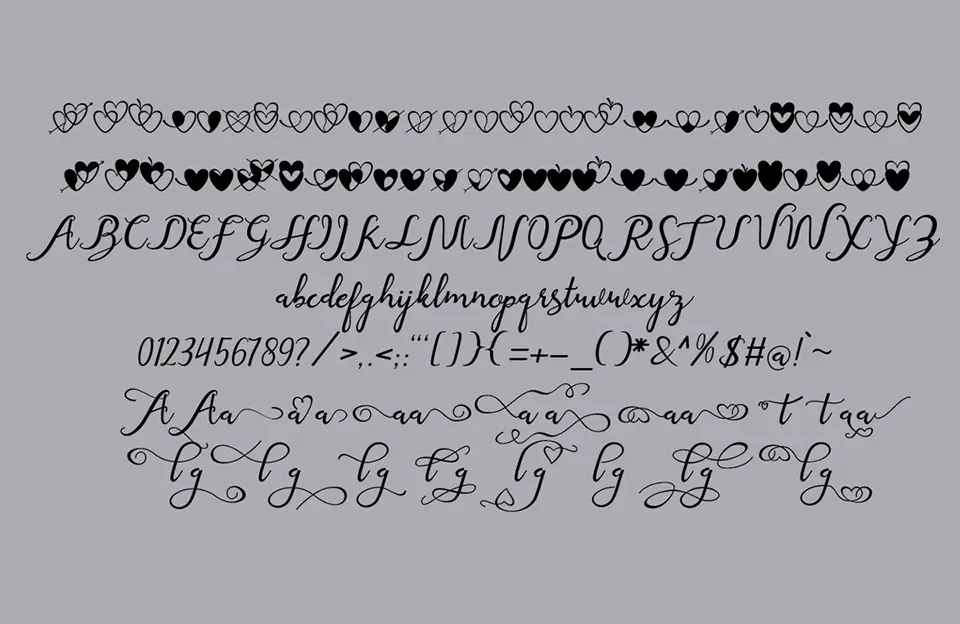 ABCDEFGHIJKLMNOPQRSTUVWXYZ
abcdefghijklmnopqrstuvwxyz
0123456789?/>,.<;:“‘[]}{=+-_()*&^%$#@!`~
A Aa a a aa a a aa t t aa
lg lg lg lg lg lg lg lg